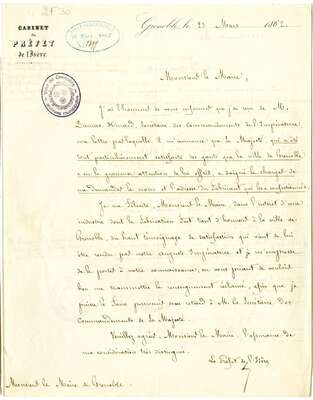 2F30
CABINET
du
PRÉFET
de l'Isère.
Grenoble, le 23 Mars 1862
Monsieur le Maire,
J'ai l'honneur de vous informer que j'ai reçu de M.
Damas Hinard, Secrétaire des Commandements de l'Impératrice,
une lettre par laquelle il m'annonce que Sa Majesté, qui a été
tout particulièrement satisfaite des gants que la ville de Grenoble
a eu la gracieuse attention de lui offrir, a daigné le charger de
me demander le nom et l'adresse du fabricant qui les a confectionnés.
Je me félicite, Monsieur le Maire, dans l'intérêt d'une
industrie dont la fabrication fait tant d'honneur à la ville de
Grenoble, du haut témoignage de satisfaction qui vient de lui
être rendu par notre auguste Impératrice, et je m'empresse
de le porter à votre connaissance, en vous priant de vouloir
bien me transmettre le renseignement réclamé, afin que je
puisse le faire parvenir sans retard à M. le Secrétaire des
Commandements de Sa Majesté.
Veuillez agréer, Monsieur le Maire, l'assurance de
ma considération très distinguée.
Le Préfet de l'Isère,
Monsieur le Maire de Grenoble.